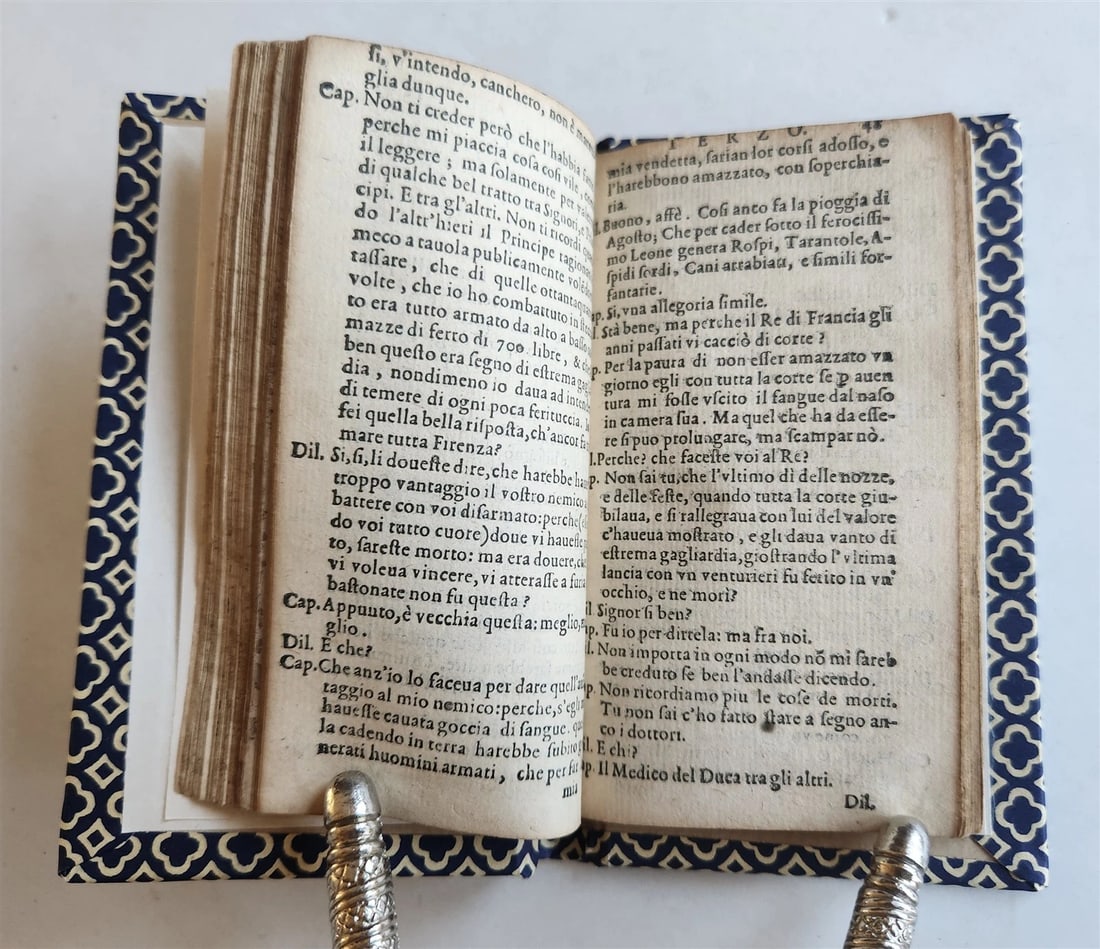 ſi, v'intendo, canchero, non è
glia dunque.
Cap. Non ti creder però che l'habbia
perche mi piaccia coſa coſi vile,
il leggere; ma ſolamente per
di qualche bel tratto tra Signori, e
cipi. E tra gl'altri. Non ti ricordi
do l'altr'hieri il Principe
meco a tauola publicamente
taſſare, che di quelle
volte, che io ho combattuto in
to era tutto armato da alto a
mazze di ferro di 700. libre, &
ben queſto era ſegno di eſtrema
dia, nondimeno io daua ad
di temere di ogni poca ferituccia.
fei quella bella riſpoſta, ch'ancor
mare tutta Firenza?
Dil. Si, ſi, li doueſte dire, che harebbe
troppo vantaggio il voſtro nemico
battere con voi diſarmato: perche
do voi tutto cuore) doue vi
to, ſareſte morto: ma era douere,
vi voleua vincere, vi atteraſſe a
baſtonate non fu queſta?
Cap. Appunto, è vecchia queſta: meglio,
glio.
Dil. E che?
Cap. Che anz'io lo faceua per dare
taggio al mio nemico: perche, s'egli
haueſſe cauata goccia di ſangue.
la cadendo in terra harebbe ſubito
nerati huomini armati, che per
mia
TERZO. 48
mia vendetta, ſarian lor corſi adoſſo, e
l'harebbono amazzato, con ſoperchia-
ria.
Buono, affè. Coſi anco fa la pioggia di
Agoſto; Che per cader ſotto il ferociſſi-
mo Leone genera Roſpi, Tarantole, A-
ſpidi ſordi, Cani arrabiati, e ſimili for-
fantarie.
p. Si, vna allegoria ſimile.
l. Stà bene, ma perche il Re di Francia gli
anni paſſati vi cacciò di corte?
p. Per la paura di non eſſer amazzato vn
giorno egli con tutta la corte ſe ꝑ auen
tura mi foſſe vſcito il ſangue dal naſo
in camera ſua. Ma quel che ha da eſſe-
re ſi puo prolungare, ma ſcampar nò.
l. Perche? che faceſte voi al Re?
p. Non ſai tu, che l'vltimo dì delle nozze,
e delle feſte, quando tutta la corte giu-
bilaua, e ſi rallegraua con lui del valore
c'haueua moſtrato, e gli daua vanto di
eſtrema gagliardia, gioſtrando l'vltima
lancia con vn venturieri fu ferito in vn'
occhio, e ne morì?
il Signor ſi ben?
p. Fu io per dirtela: ma fra noi.
l. Non importa in ogni modo nõ mi ſareb
be creduto ſe ben l'andaſſe dicendo.
p. Non ricordiamo piu le coſe de morti.
Tu non ſai c'ho fatto ſtare a ſegno an-
co i dottori.
l. E che?
p. Il Medico del Duca tra gli altri.
Dil.